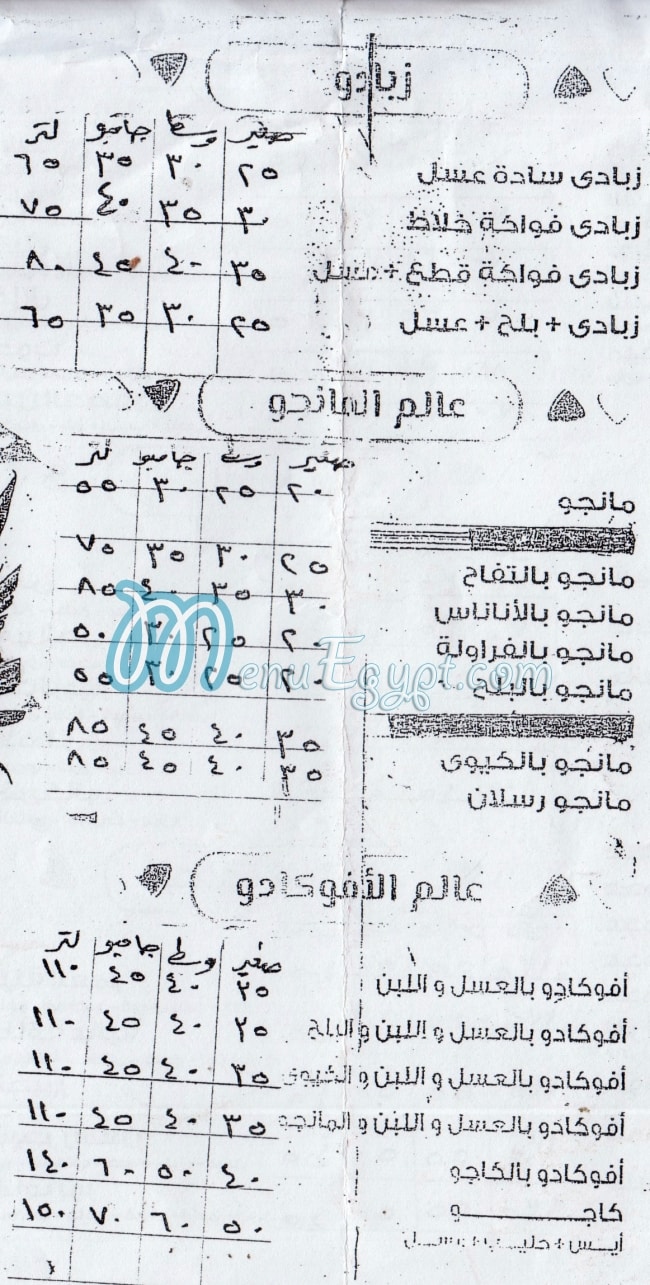 زبادو
صغير وسط جامبو لتر
زبادى سادة عسل ٢٥ ٣٠ ٣٥ ٦٥
زبادى فواكة خلاط ٣٠ ٣٥ ٤٠ ٧٥
زبادى فواكة قطع + عسل ٣٥ ٤٠ ٤٥ ٨٠
زبادى + بلح + عسل ٢٥ ٣٠ ٣٥ ٦٥
عالم المانجو
صغير وسط جامبو لتر
مانجو ٢٠ ٢٥ ٣٠ ٥٥
مانجو بالتفاح ٢٥ ٣٠ ٣٥ ٧٥
مانجو بالأناناس ٣٠ ٣٥ ٤٠ ٨٥
مانجو بالفراولة ٢٠ ٢٥ ٣٠ ٥٠
مانجو بالبلح ٢٠ ٢٥ ٣٠ ٥٥
مانجو بالكيوى ٣٥ ٤٠ ٤٥ ٨٥
مانجو رسلان ٣٥ ٤٠ ٤٥ ٨٥
MenuEgypt.com
عالم الأفوكادو
صغير وسط جامبو لتر
أفوكادو بالعسل و اللبن ٣٥ ٤٠ ٤٥ ١١٠
أفوكادو بالعسل و اللبن و البلح ٣٥ ٤٠ ٤٥ ١١٠
أفوكادو بالعسل و اللبن و الكيوى ٣٥ ٤٠ ٤٥ ١١٠
أفوكادو بالعسل و اللبن و المانجو ٣٥ ٤٠ ٤٥ ١١٠
أفوكادو بالكاجو ٤٠ ٥٠ ٦٠ ١٤٠
كاجـــــــو ٥٠ ٦٠ ٧٠ ١٥٠
أيس + حليب + عسل